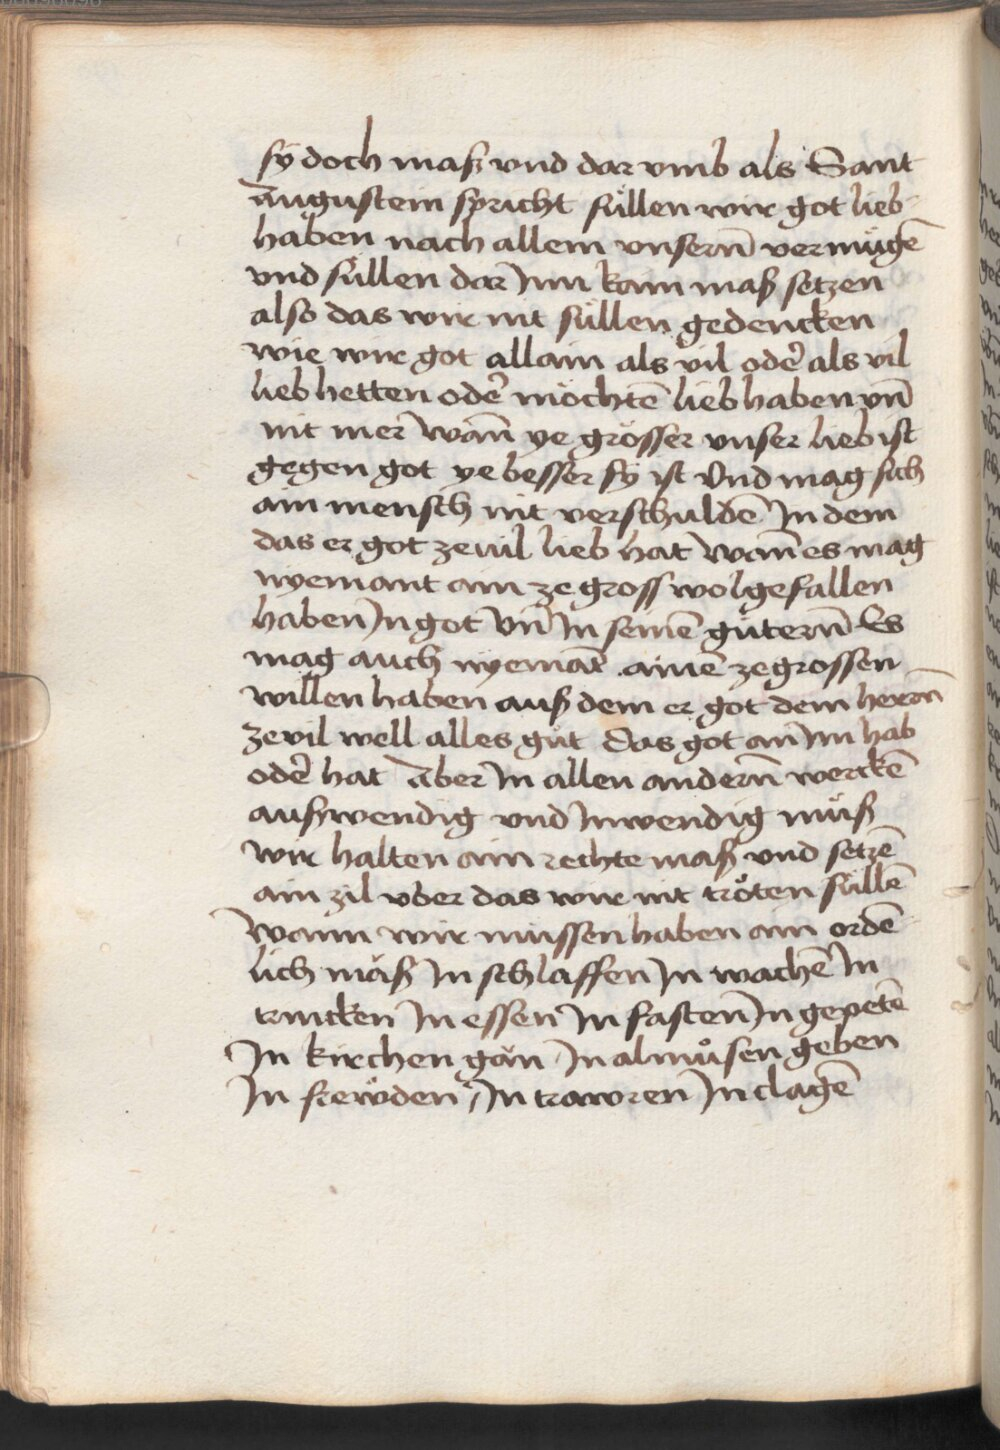 sÿ doch maß vnd dar vmb als Sant
augustein spricht süllen wir got lieb
haben nach allem vnsern̄ vermügē
vnd süllen dar Jnn kain maß setzen
also das wir nit süllen gedencken
wie wir got allain als vil odeꝛ als vil
lieb hetten odeꝛ möchtē lieb haben vn̄
nit mer wan̄ ye grösser vnser lieb ist
gegen got ye besser sÿ ist Vnd mag sich
ain mensch nit verschuldē Jn dem
das er got zeuil lieb hat wan̄ es mag
nyemant ain ze gross wolgefallen
haben Jn got vn̄ Jn seinē gütern̄ Es
mag auch nyemāt ainē ze grossen
willen haben auß dem er got dem herrn̄
ze vil well alles gůt das got an Jm hab
odeꝛ hat Aber Jn allen andern̄ werckē
außwendig vnd Jnwendig müß
wir halten ain rechte maß vnd setzē
ain zil vber das wir nit tröten süllē
wann wir müssen haben ain ordē
lich mäß Jn schlaffen Jn wachē Jn
trincken Jn essen Jn fasten Jn gepetē
Jn kirchen gän Jn almůsen geben
Jn frewden Jn trawren Jn clagē